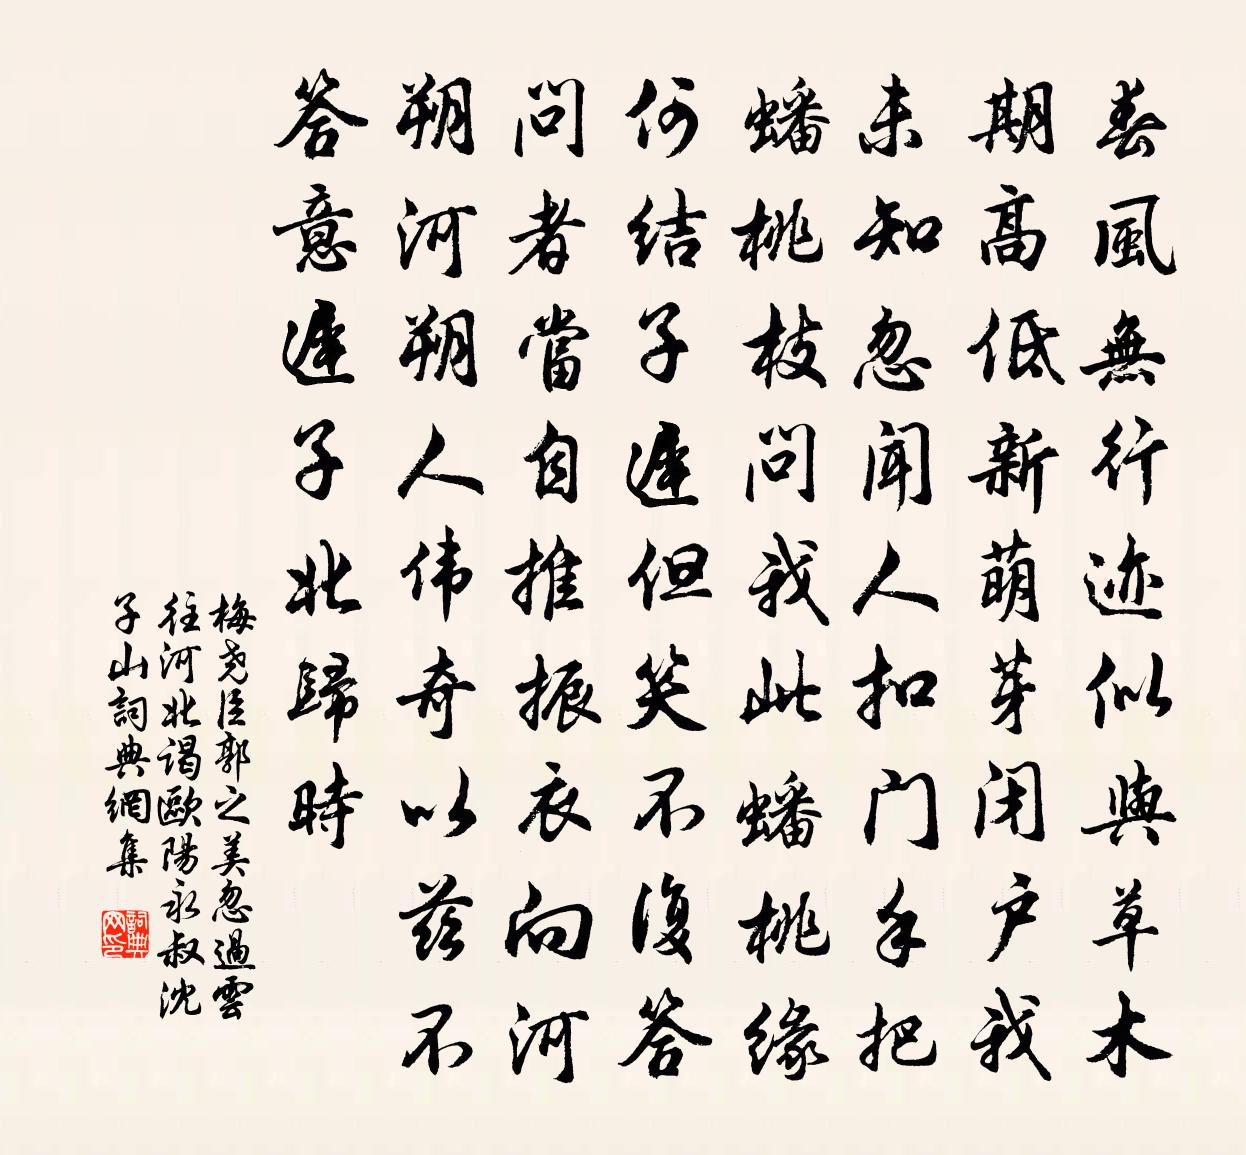 春風無行迹似與草木
期高低新萌芽闭户我
未知忽闻人扣门手把
蟠桃枝问我此蟠桃缘
何结子遲但笑不復答
问者當自推振衣向河
朔河朔人伟奇以兹不
答意遲子北歸時
梅尧臣郭之美忽過雲
往河北谒歐陽永叔沈
子山詞典網集
詞典网印